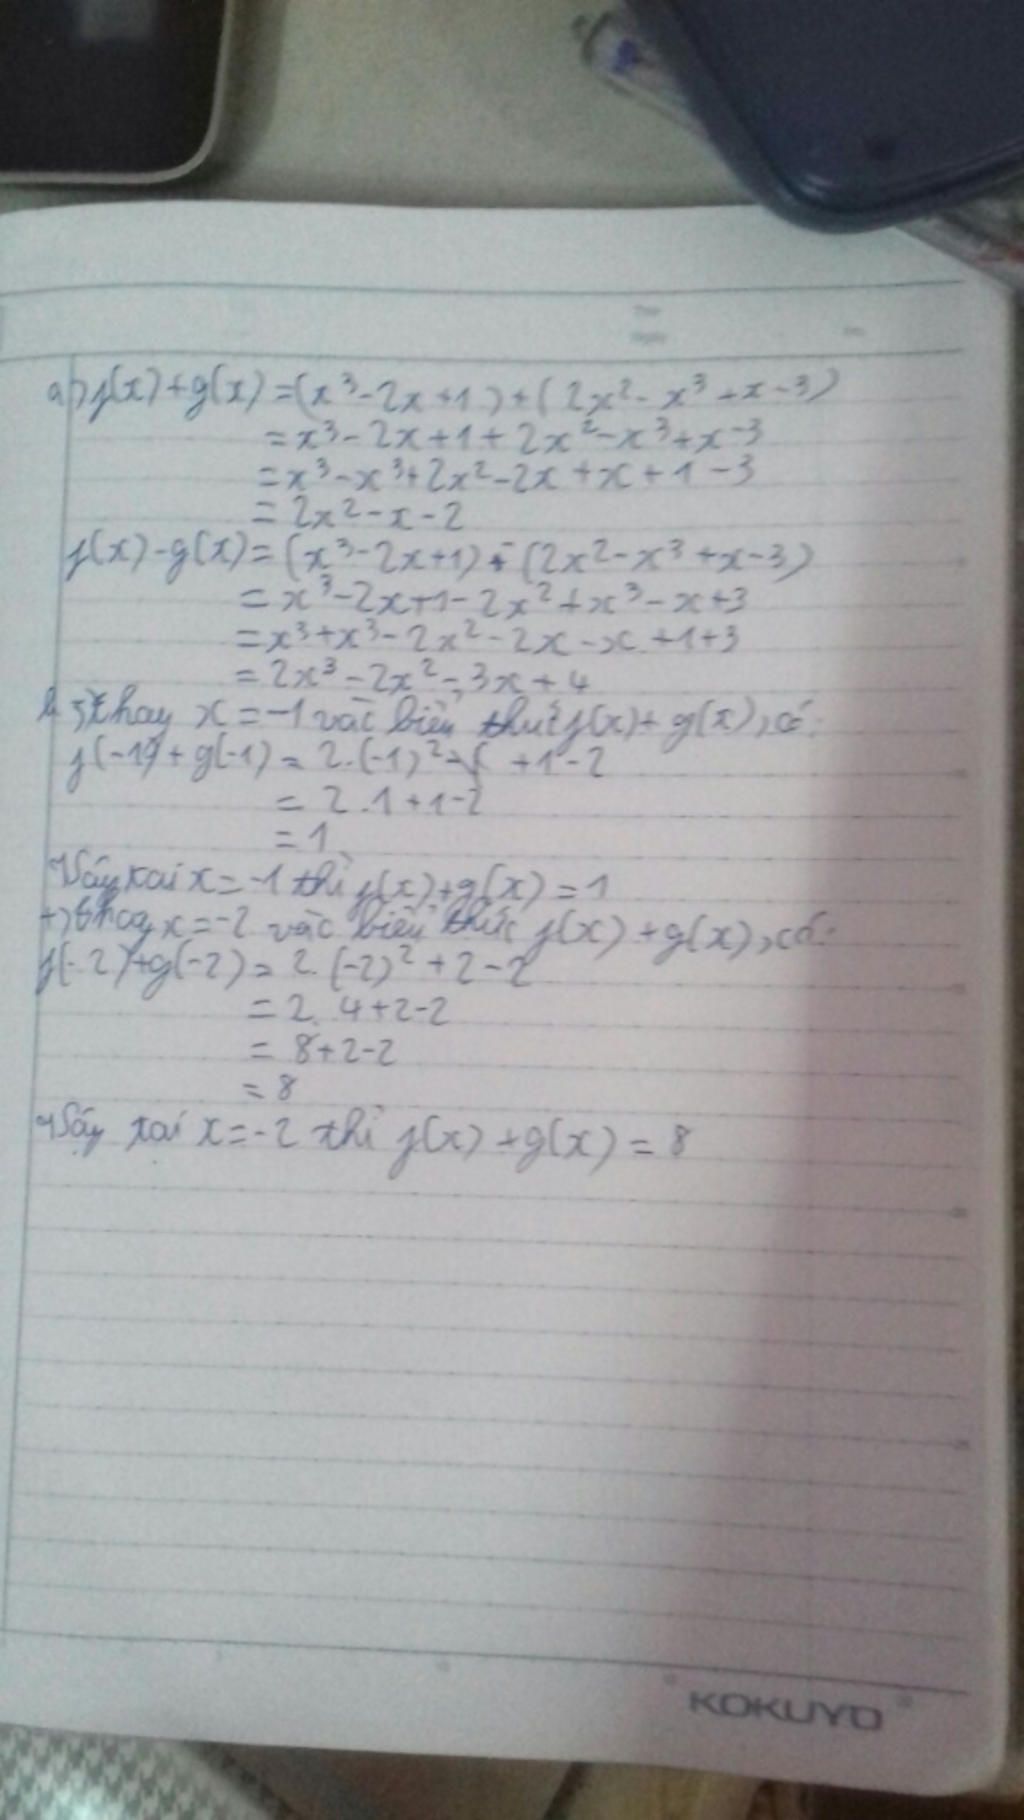 a) f(x)+g(x) = (x³-2x+1)+(2x²-x³+x-3)
= x³-2x+1+2x²-x³+x-3
= x³-x³+2x²-2x+x+1-3
= 2x²-x-2
f(x)-g(x) = (x³-2x+1)-(2x²-x³+x-3)
= x³-2x+1-2x²+x³-x+3
= x³+x³-2x²-2x-x+1+3
= 2x³-2x²-3x+4
thay x=-1 vào biểu thức f(x)+g(x), có:
f(-1)+g(-1) = 2.(-1)² +1-2
= 2.1+1-2
= 1
Vậy tại x=-1 thì f(x)+g(x)=1
+) thay x=-2 vào biểu thức f(x)+g(x), có:
f(-2)+g(-2) = 2.(-2)²+2-2
= 2.4+2-2
= 8+2-2
= 8
Vậy tại x=-2 thì f(x)+g(x)=8
KOKUYO